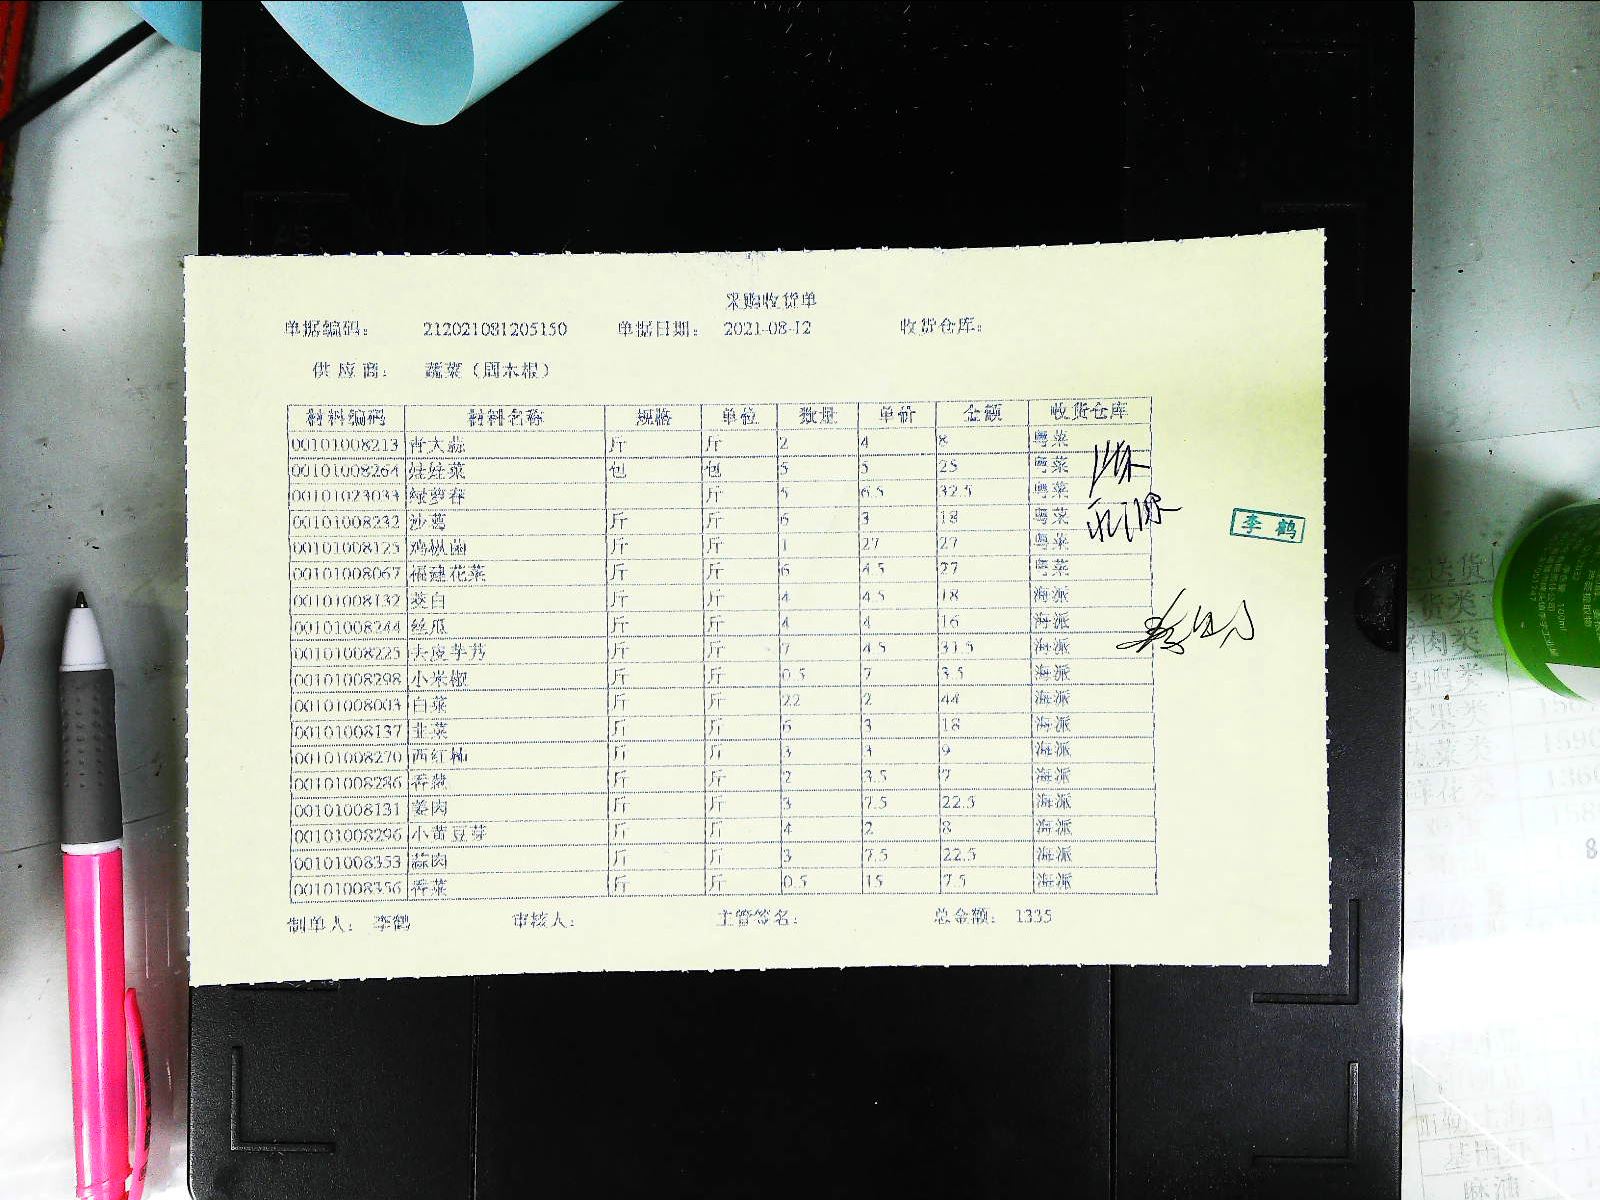 采购收货单
单据编码： 212021081205150 单据日期： 2021-08-12 收货仓库：
供应商： 蔬菜（周木根）
材料编码 材料名称 规格 单位 数量 单价 金额 收货仓库
00101008213 青大蒜 斤 斤 2 4 8 粤菜
00101008264 娃娃菜 包 包 5 5 25 粤菜
00101023033 绿萝春 斤 5 6.5 32.5 粤菜
00101008232 沙葛 斤 斤 6 3 18 粤菜
00101008125 鸡枞菌 斤 斤 1 27 27 粤菜
00101008067 福建花菜 斤 斤 6 4.5 27 粤菜
00101008132 茭白 斤 斤 4 4.5 18 海派
00101008244 丝瓜 斤 斤 4 4 16 海派
00101008225 去皮芋艿 斤 斤 7 4.5 31.5 海派
00101008298 小米椒 斤 斤 0.5 7 3.5 海派
00101008003 白菜 斤 斤 22 2 44 海派
00101008137 韭菜 斤 斤 6 3 18 海派
00101008270 西红柿 斤 斤 3 3 9 海派
00101008286 香葱 斤 斤 2 3.5 7 海派
00101008131 姜肉 斤 斤 3 7.5 22.5 海派
00101008296 小黄豆芽 斤 斤 4 2 8 海派
00101008353 蒜肉 斤 斤 3 7.5 22.5 海派
00101008356 香菜 斤 斤 0.5 15 7.5 海派
制单人： 李鹤 审核人： 主管签名： 总金额： 1335
李鹤